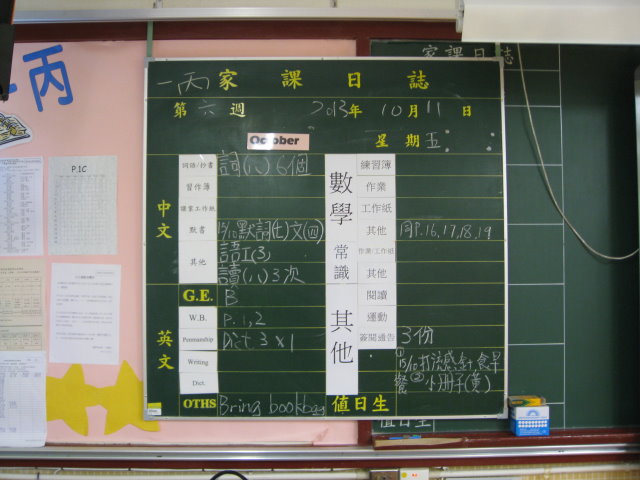 一丙
P.1C
家課日誌
一丙家課日誌
第六週 2013年10月11日
October 星期五
中文
詞語/抄書 詞(八)6個
習作簿
課室工作紙
默書 15/10默詞(七)文(四)
其他 語工(3)
讀(八)3次
數學
練習簿
作業
工作紙
其他 同P.16,17,18,19
常識
作業/工作紙
其他
英文
G.E. B
W.B. P.1,2
Penmanship Dict 3 x 1
Writing
Dict.
OTHS Bring bookbag
其他
閱讀
運動
簽閱通告 3份
①15/10打流感針,食早
餐 ②小冊子(黃)
值日生
值日生